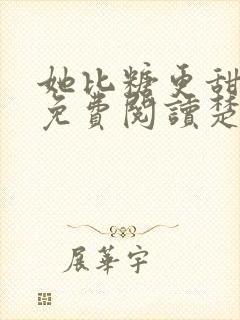 她比糖更甜
免費閱讀楚
展華宇